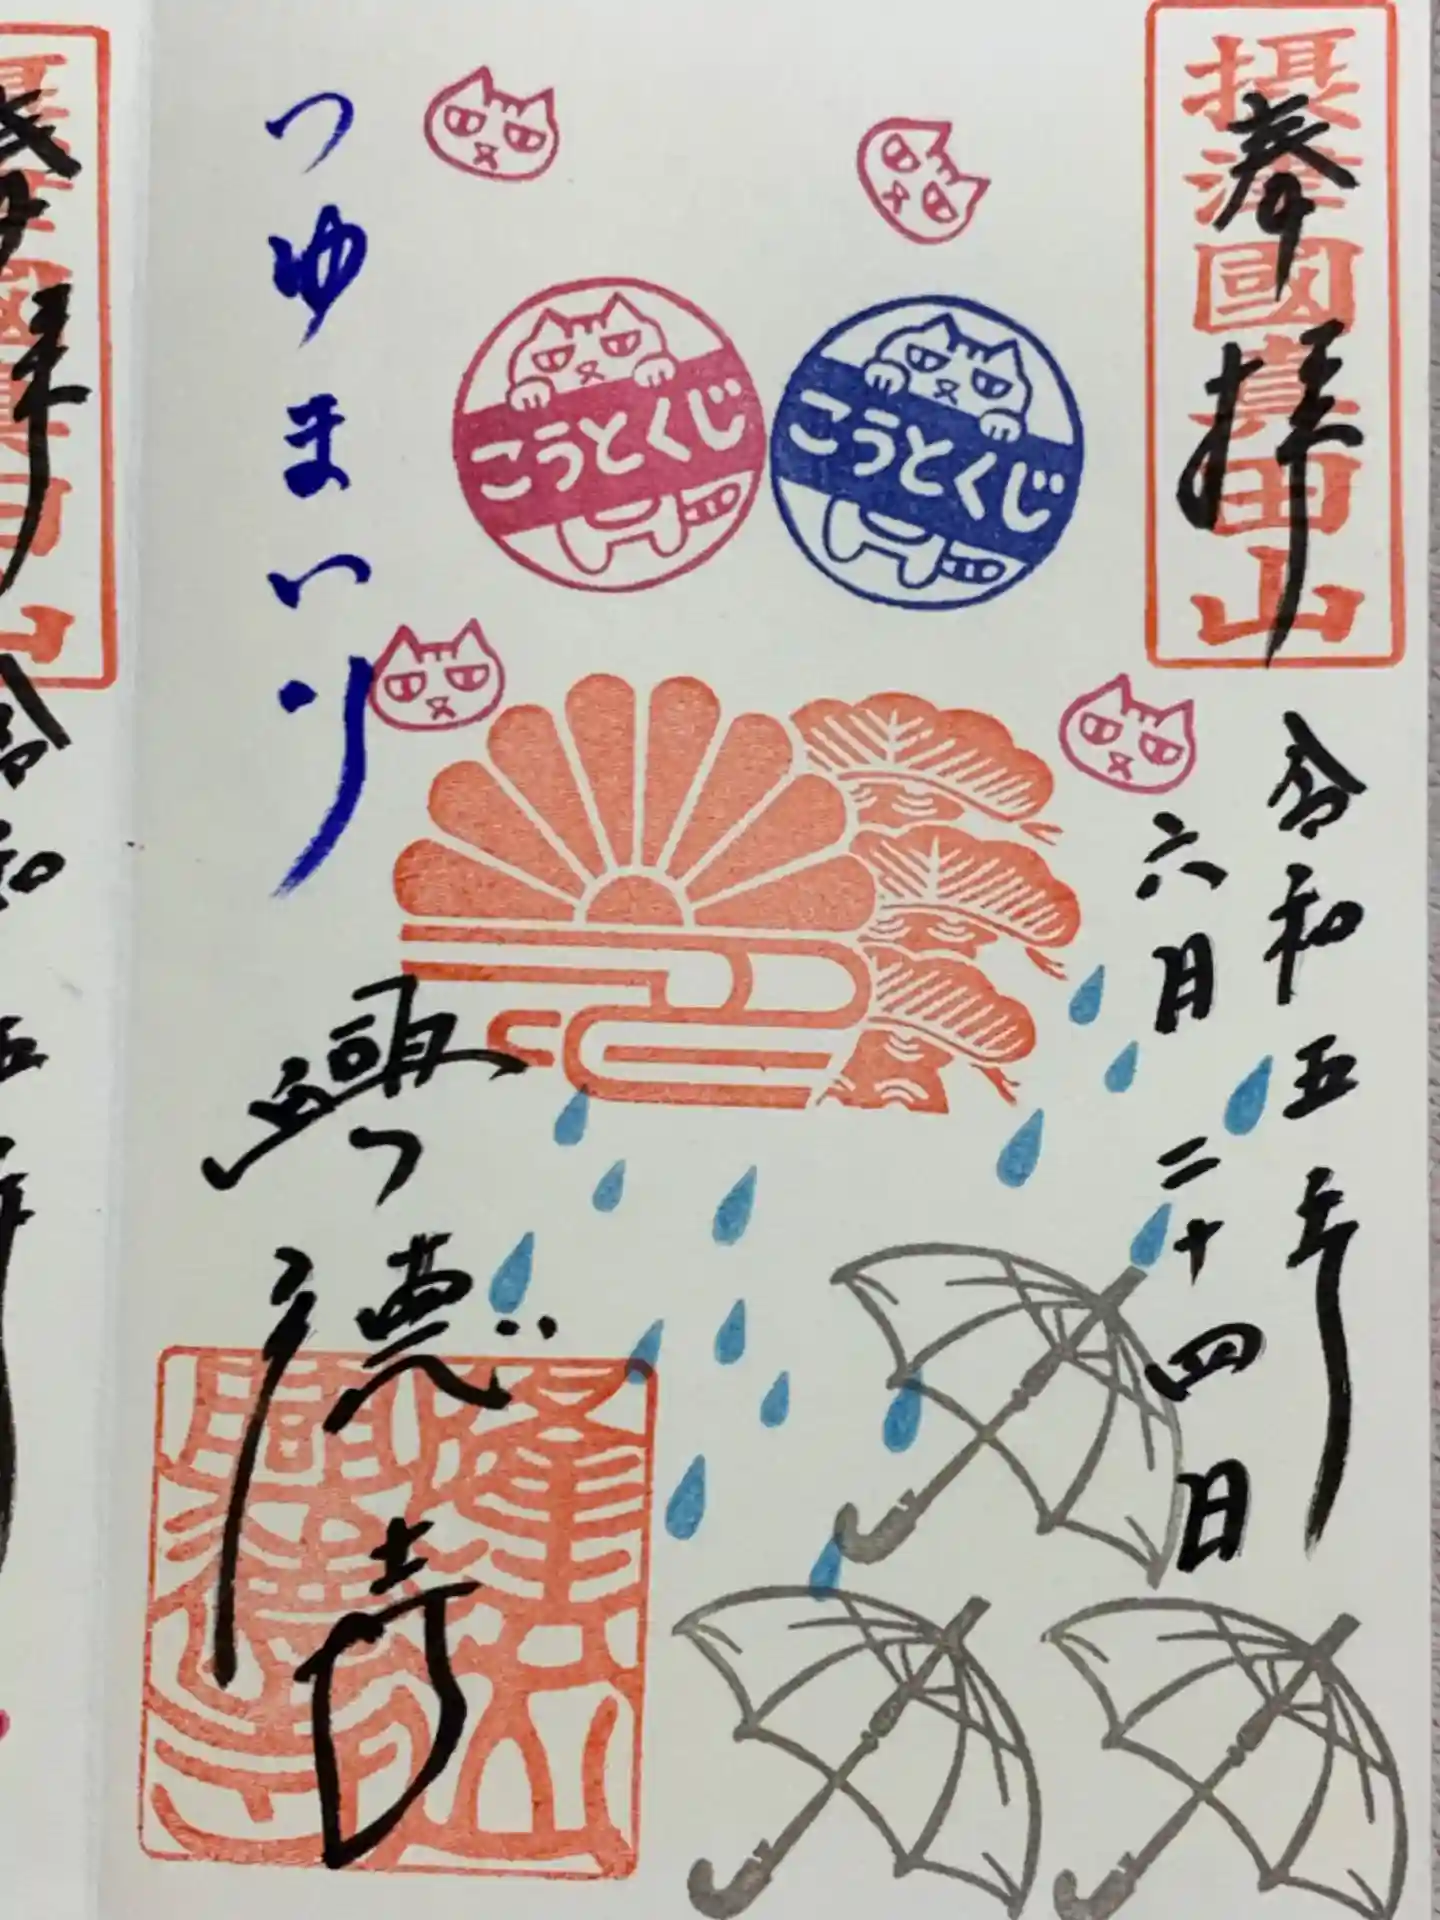 摂津國真田山
奉拝
令和五年
六月二十四日
こうとくじ
こうとくじ
つゆまいり
興徳寺